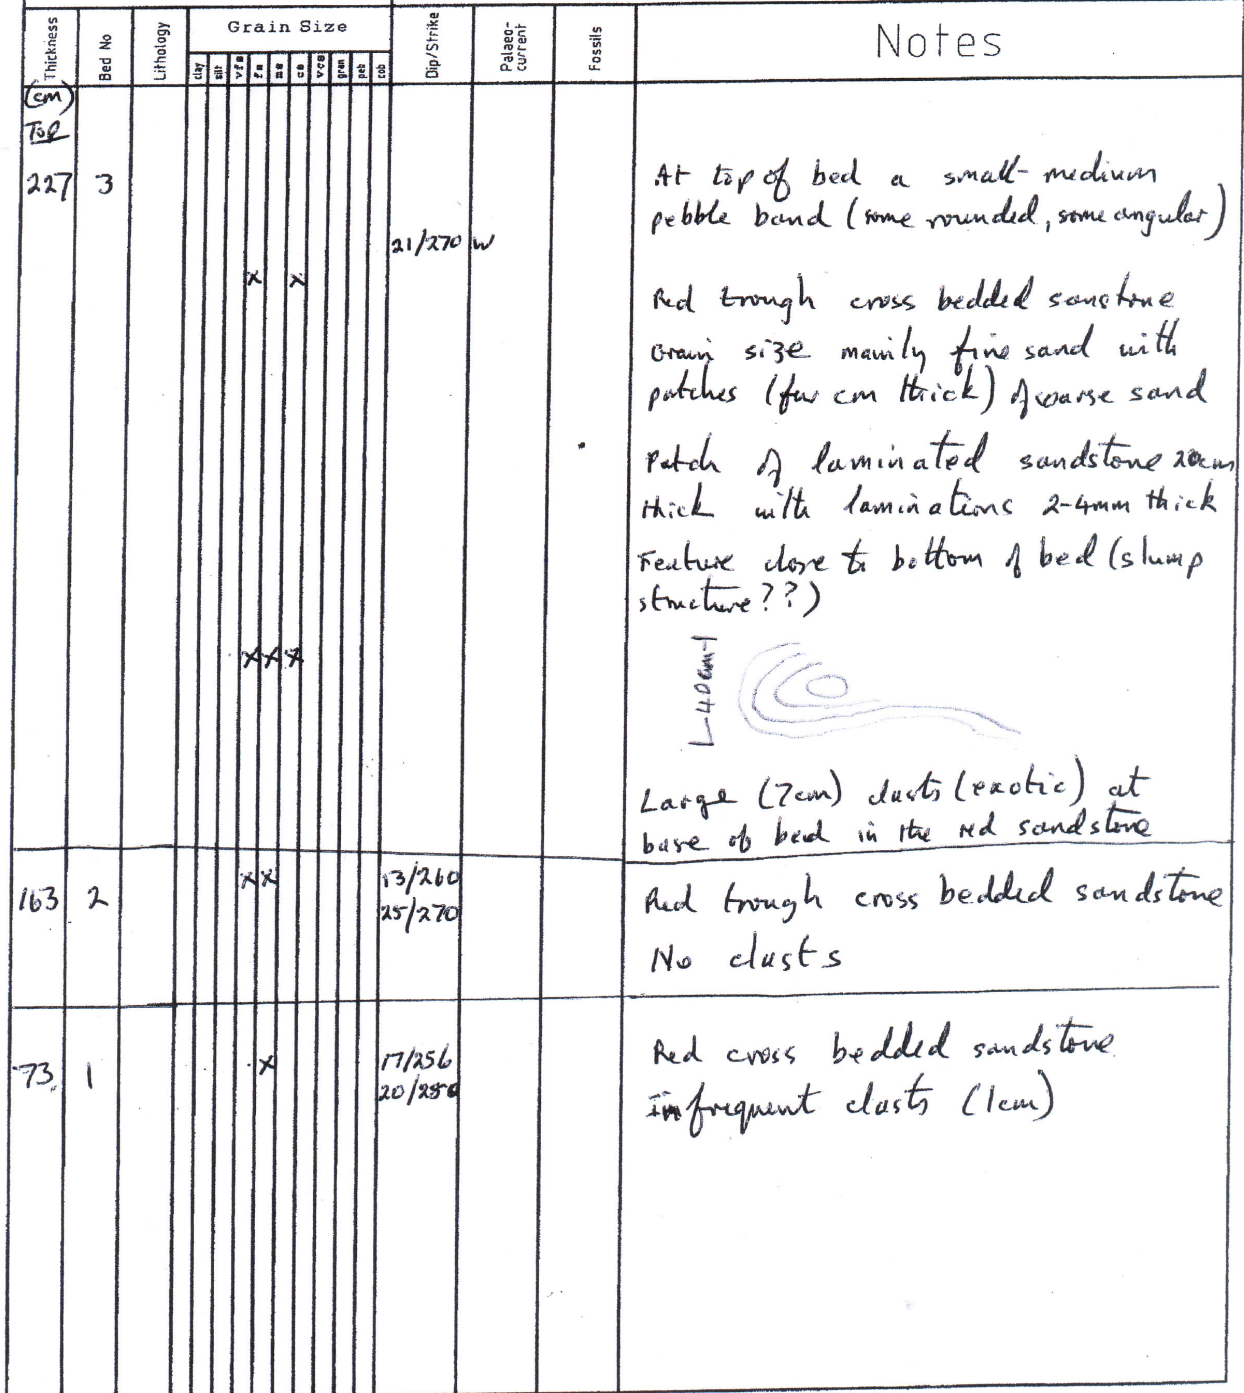 Thickness
Bed No
Lithology
Grain Size
clay
silt
vfs
fs
ms
cs
vcs
gran
peb
cob
Dip/Strike
Palaeo-
current
Fossils
Notes
(cm)
Top
227 3
21/270 W
x x
x x x
At top of bed a small-medium
pebble band (some rounded, some angular)
Red trough cross bedded sanstone
Grain size mainly fine sand with
patches (few cm thick) of coarse sand
Patch of laminated sandstone 20cm
thick with laminations 2-4mm thick
Feature close to bottom of bed (slump
structure??)
40cm
Large (7cm) clasts (exotic) at
base of bed in the red sandstone
163 2
x x
13/260
25/270
Red trough cross bedded sandstone
No clasts
73 1
x
17/256
Red cross bedded sandstone
Infrequent clasts (1cm)